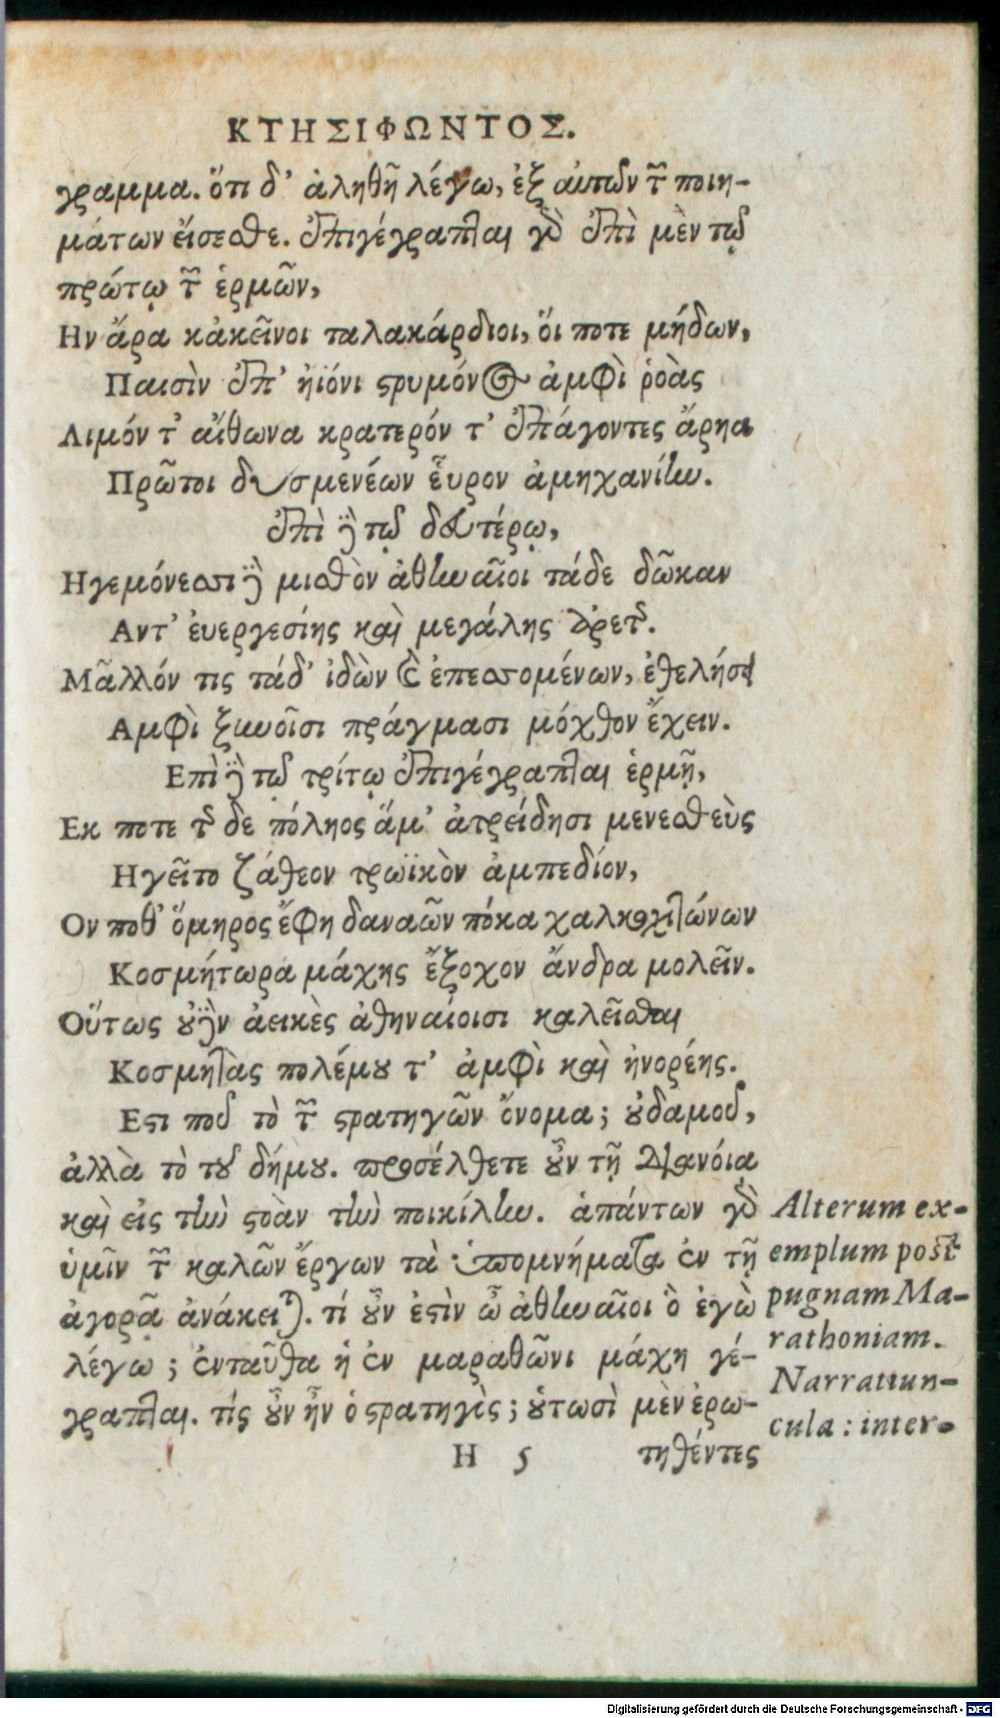 ΚΤΗΣΙΦΩΝΤΟΣ.
γραμμα. ὅτι δ' ἀληθῆ λέγω, ἐξ αὐτῶν τῶν ποιη-
μάτων εἴσεσθε. ἐπιγέγραπται γὸ ἐπὶ μὲν τῷ
πρώτῳ τῶν ἑρμῶν,
Ην ἄρα κἀκεῖνοι ταλακάρδιοι, ὅι ποτε μήδων,
Παισὶν ἐπ' ἠϊόνι στρυμόνος ἀμφὶ ῥοὰς
Λιμόν τ' αἴθωνα κρατερόν τ' ἐπάγοντες ἄρηα
Πρῶτοι δυσμενέων εὗρον ἀμηχανίην.
ἐπὶ δὲ τῷ δευτέρῳ,
Ηγεμόνεσσι δὲ μισθὸν ἀθηναῖοι τάδε δῶκαν
Αντ' ἐυεργεσίης καὶ μεγάλης ἀρετῆς.
Μᾶλλόν τις τάδ' ἰδὼν καὶ ἐπεσσομένων, ἐθελήσει
Αμφὶ ξυνοῖσι πράγμασι μόχθον ἔχειν.
Επὶ δὲ τῷ τρίτῳ ἐπιγέγραπται ἑρμῇ,
Εκ ποτε τῆς δε πόληος ἅμ' ἀτρείδησι μενεσθεὺς
Ηγεῖτο ζάθεον τρωϊκὸν ἀμπεδίον,
Ον ποθ' ὅμηρος ἔφη δαναῶν πόκα χαλκοχιτώνων
Κοσμήτωρα μάχης ἔξοχον ἄνδρα μολεῖν.
Οὕτως οὐδὲν ἀεικὲς ἀθηναίοισι καλεῖσθαι
Κοσμητὰς πολέμου τ' ἀμφὶ καὶ ἠνορέης.
Εστι που τὸ τῶν στρατηγῶν ὄνομα; οὐδαμοῦ,
ἀλλὰ τὸ τοῦ δήμου. προσέλθετε οὖν τῇ διανόιᾳ
καὶ εἰς τὴν στοὰν τὴν ποικίλην. ἁπάντων γὸ
ὑμῖν τῶν καλῶν ἔργων τὰ ὑπομνήματα ἐν τῇ
ἀγορᾷ ἀνάκειται. τί οὖν ἐστὶν ὦ ἀθηναῖοι ὃ ἐγὼ
λέγω; ἐνταῦθα ἡ ἐν μαραθῶνι μάχη γέ-
γραπται. τίς οὖν ἦν ὁ στρατηγὸς; οὑτωσὶ μὲν ἐρω-
Η 5 τηθέντες
Alterum ex-
emplum post
pugnam Ma-
rathoniam.
Narratiun-
cula: inter-
Digitalisierung gefördert durch die Deutsche Forschungsgemeinschaft - DFG